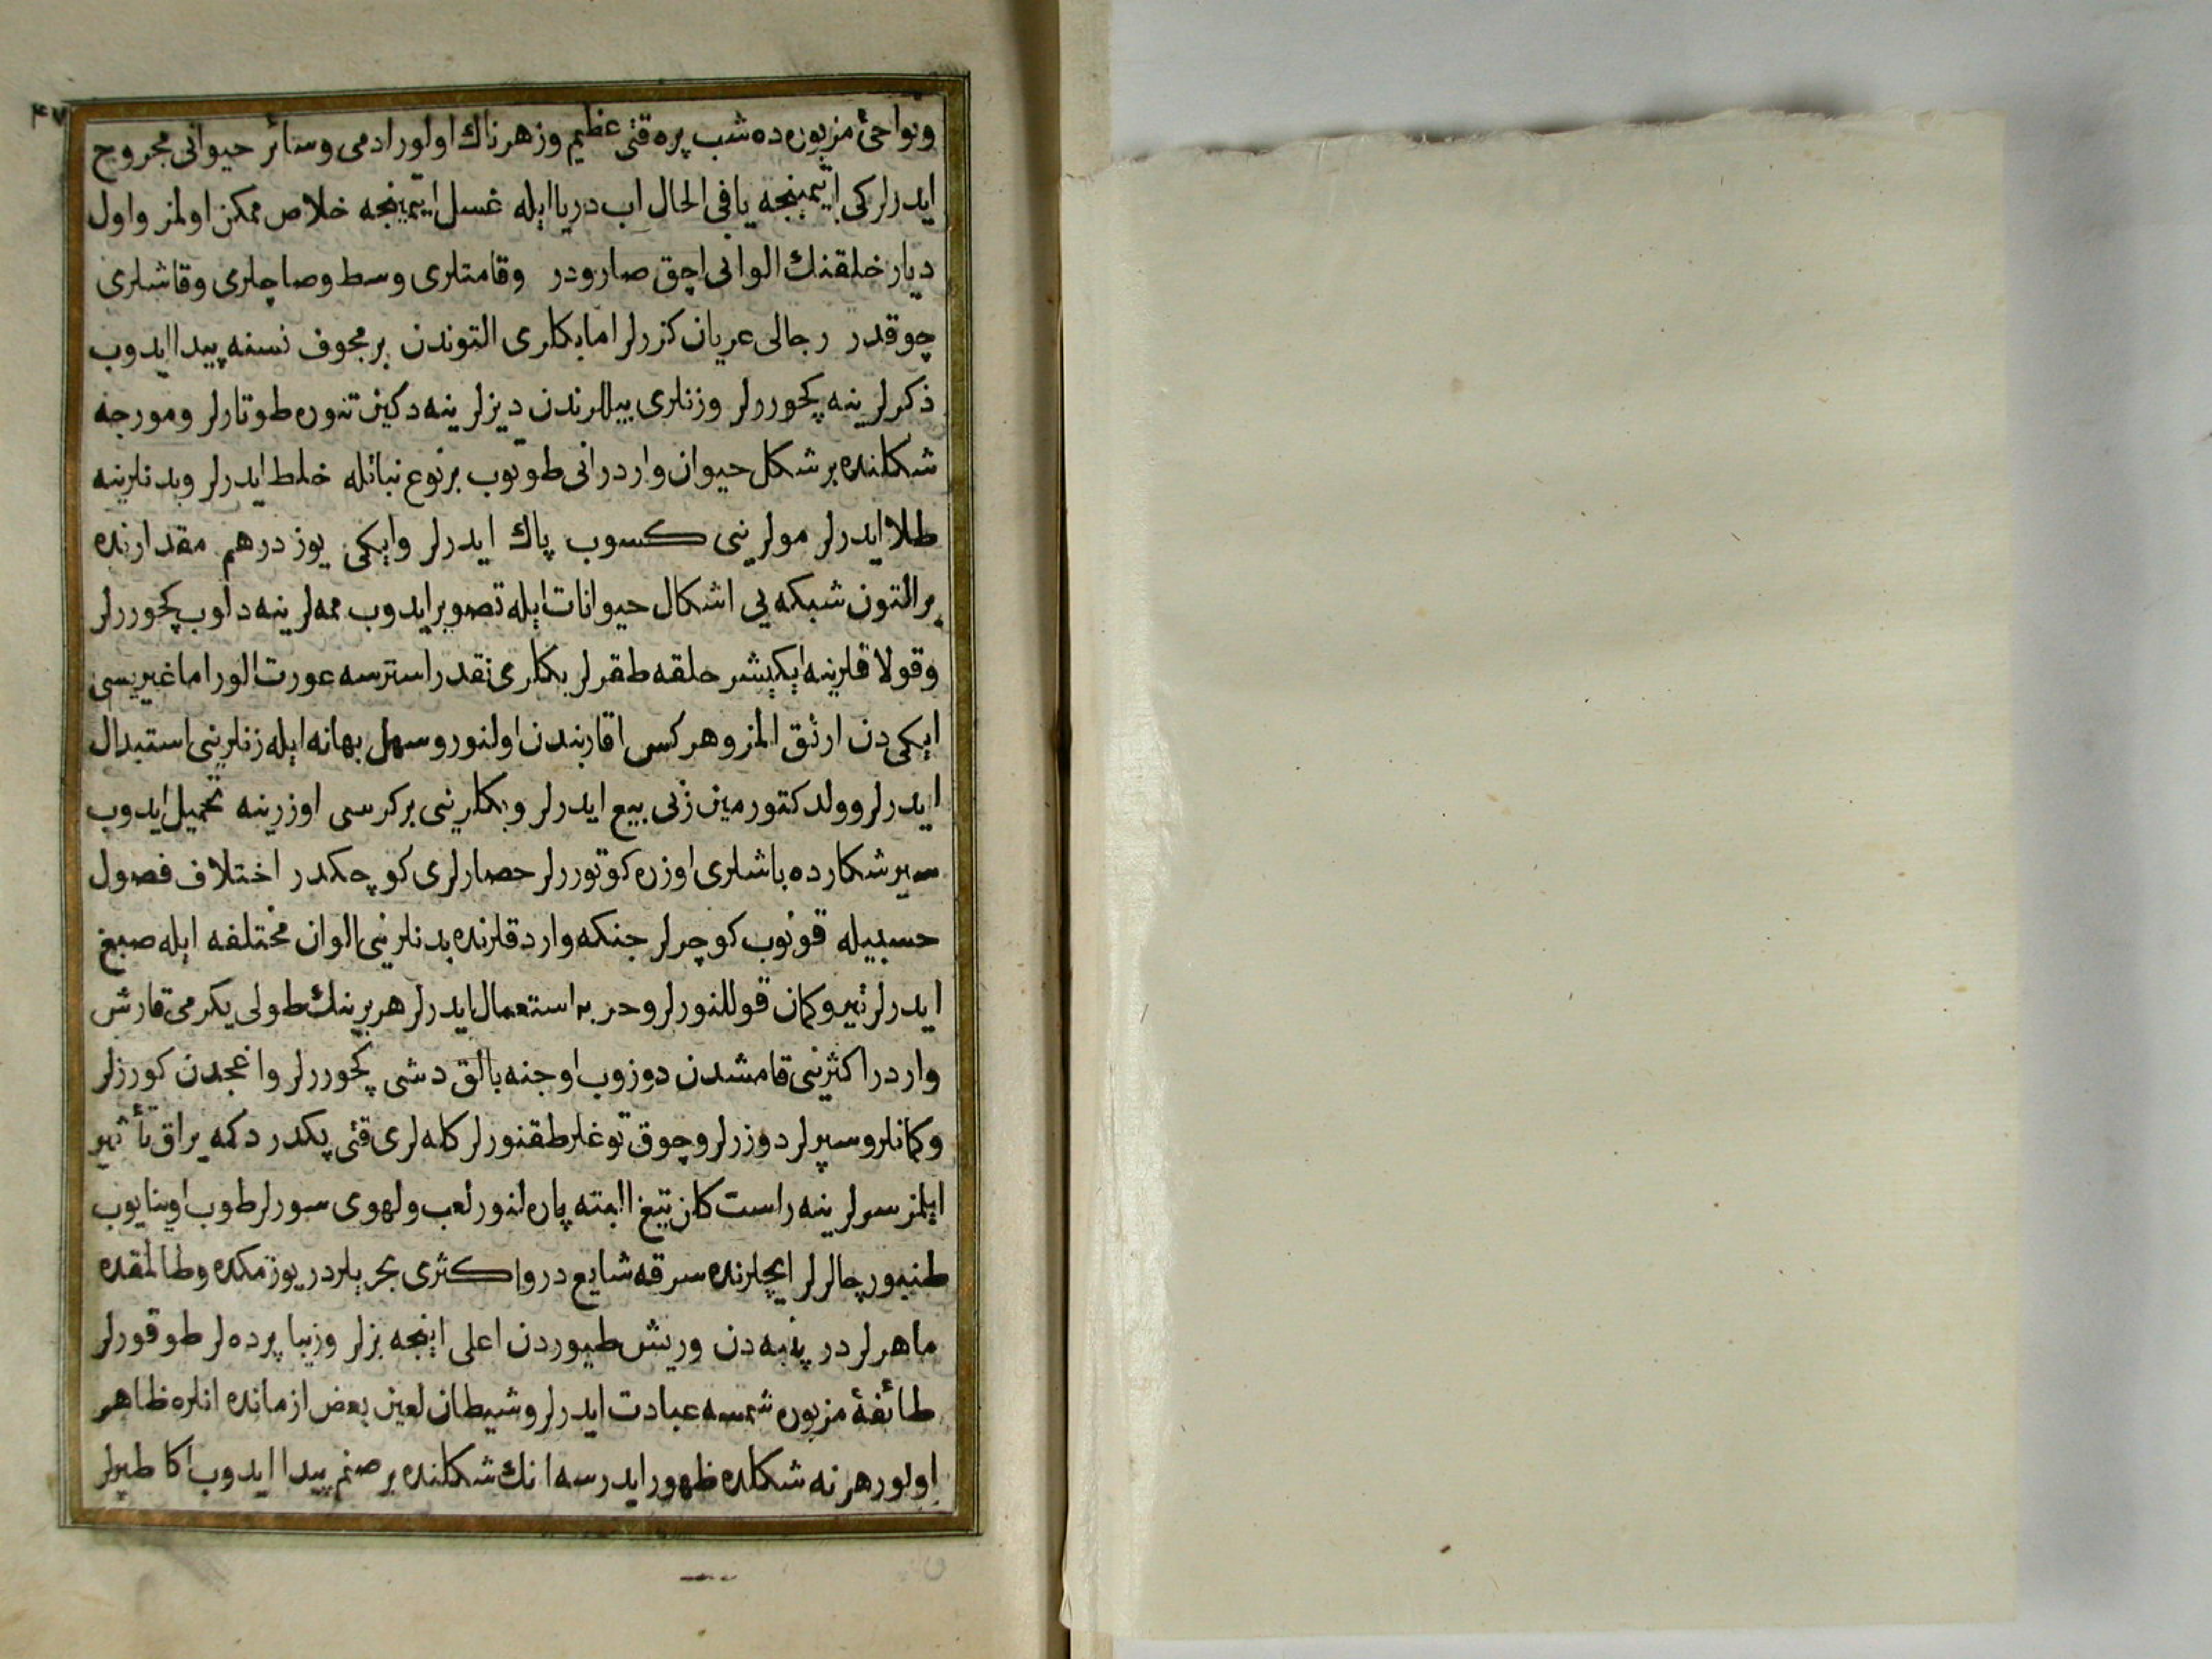 ۴۷
ونواحئ مزبوره ده شب پره قتی عظیم وزهرناك اولور ادمی وسائر حیوانی مجروح
ایدرلر کی ایتمینجه یا فی الحال اب دریا ایله غسل ایتمینجه خلاص ممکن اولمز واول
دیار خلقنك الوانی اچق صارودر وقامتلری وسط وصاچلری وقاشلری
چوقدر رجالی عریان کزرلر اما بکلری التوندن بر مجوف نسنه پیدا ایدوب
ذکرلرینه کچوررلر وزنلری بیللرندن دیزلرینه دکین تنوره طوتارلر ومورجه
شکلنده بر شکل حیوان واردر انی طوتوب بر نوع نباتله خلط ایدرلر وبدنلرینه
طلا ایدرلر مولرینی کسوب پاك ایدرلر وایکی یوز درهم مقدارنده
بر التون شبکه یی اشکال حیوانات ایله تصویر ایدوب ممه لرینه دلوب کچوررلر
وقولاقلرینه ایکیشر حلقه طقرلر بکلری نقدر استرسه عورت الور اما غیریسی
ایکی دن ارتق المز وهرکس اقاربندن اولنور وسهل بهانه ایله زنلرینی استبدال
ایدرلر وولد کتورمین زنی بیع ایدرلر وبکلرینی بر کرسی اوزرینه تحمیل ایدوب
سیر شکارده باشلری اوزره کوتوررلر حصارلری کوچکدر اختلاف فصول
حسبیله قونوب کوچرلر جنکه واردقلرنده بدنلرینی الوان مختلفه ایله صبغ
ایدرلر تیر وکمان قوللنورلر وحربه استعمال ایدرلر هر برینك طولی یکرمی قارش
واردر اکثرینی قامشدن دوزوب اوجنه بالق دشی کچوررلر واغجدن کورزلر
وکمانلر وسپرلر دوزرلر وچوق توغلر طقنورلر کله لری قتی پکدر دکمه یراق تأثیر
ایلمز سرلرینه راست کلن تیغ البته پاره لنور لعب ولهوی سورلر طوب اوینایوب
طنبور چالرلر ایچلرنده سرقه شایع در واکثری بحریلردر یوزمکده وطالمقده
ماهرلردر پنبه دن وریش طیوردن اعلی اینجه بزلر وزیبا پرده لر طوقورلر
طائفهٔ مزبوره شمسه عبادت ایدرلر وشیطان لعین بعض ازمانده انلره ظاهر
اولور هر نه شکلده ظهور ایدرسه انك شکلنده بر صنم پیدا ایدوب اکا طپرلر